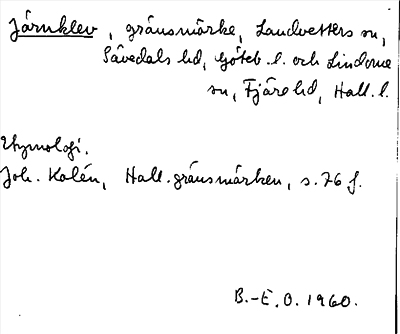 Järnklev, gränsmärke, Landvetters sn,
Sävedals hd, Göteb. l. och Lindome
sn, Fjäre hd, Hall. l.
Etymologi.
Joh. Kalén, Hall. gränsmärken, s. 76 f.
B.-E. O. 1960.